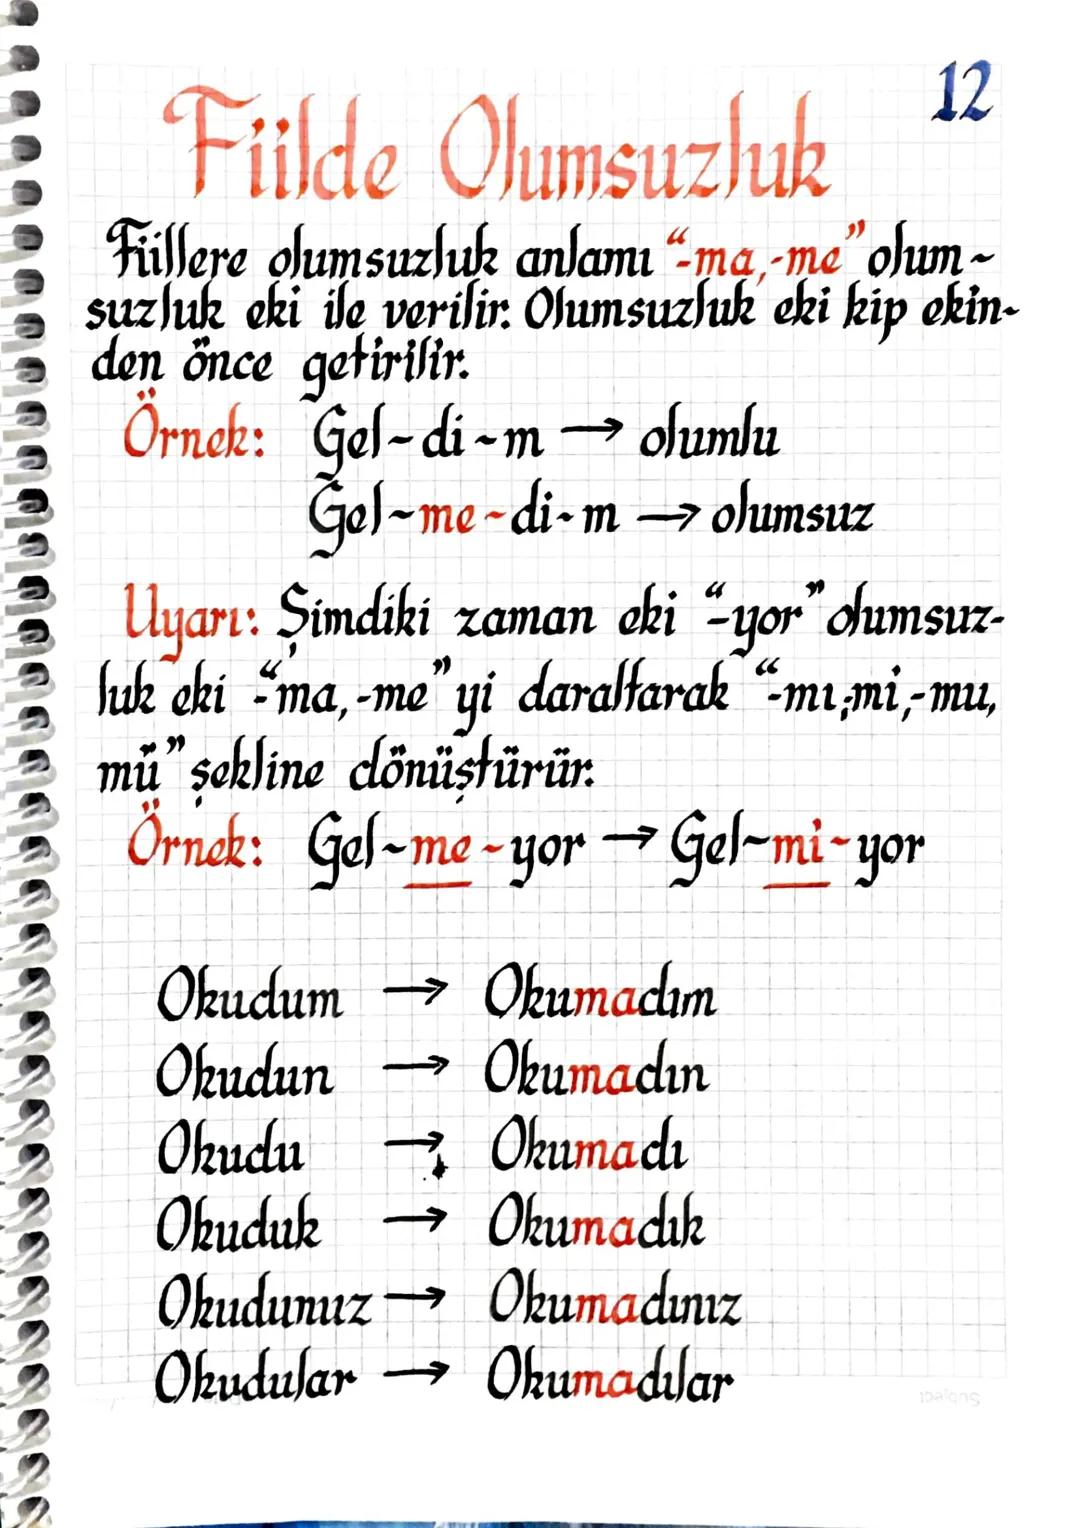 12
Fiilde Olumsuzluk
Fiillere olumsuzluk anlamı “-ma,-me” olum-
suzluk eki ile verilir. Olumsuzluk eki kip ekin-
den önce getirilir.
Örnek: Gel-di-m → olumlu
Gel-me-di-m → olumsuz
Uyarı: Şimdiki zaman eki “-yor” olumsuz-
luk eki -“ma,-me”yi daraltarak “-mı,-mi,-mu,
mü” şekline dönüştürür.
Örnek: Gel-me-yor → Gel-mi-yor
Okudum → Okumadım
Okudun → Okumadın
Okudu → Okumadı
Okuduk → Okumadık
Okudunuz → Okumadınız
Okudular → Okumadılar
Subject